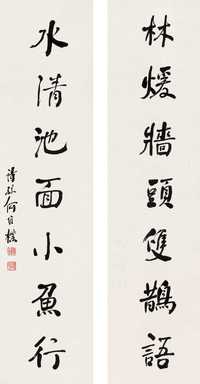 林煖牆頭雙鵲語
水清池面小魚行
何自